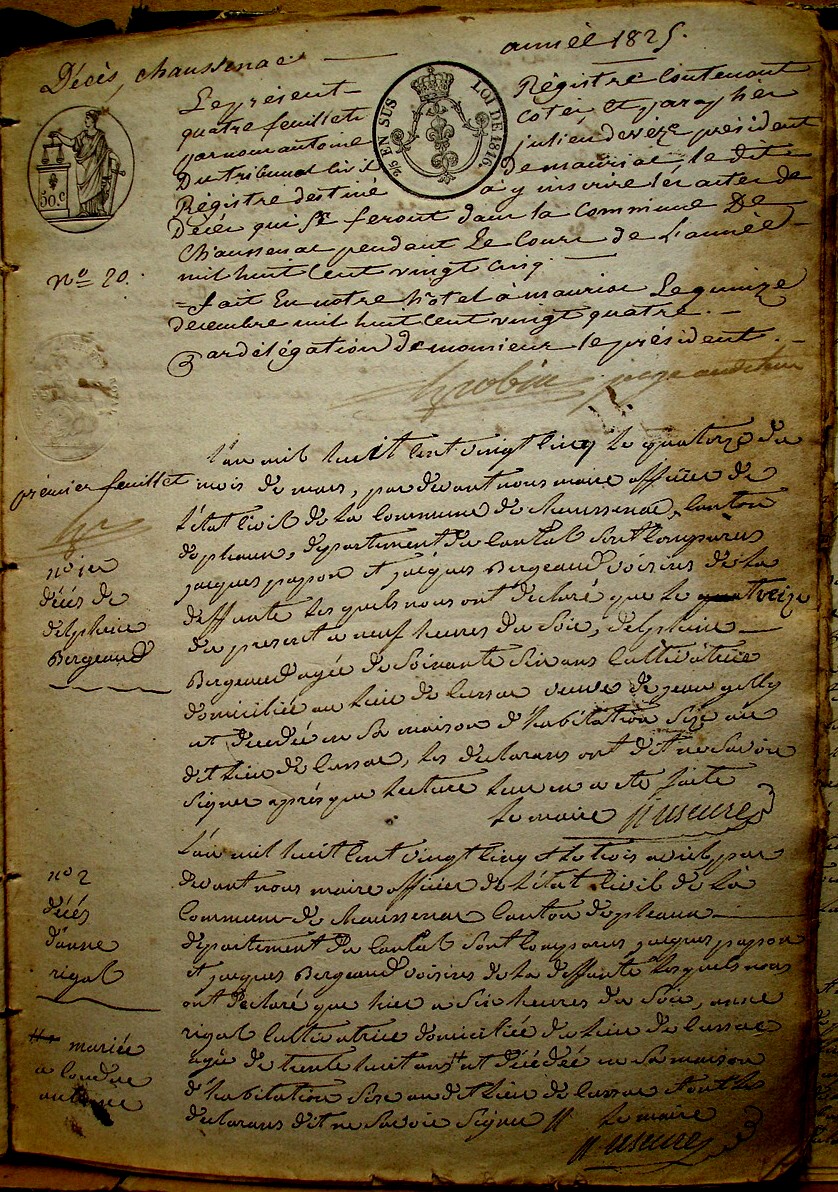 Décès, chaussenac — année 1825.
Le présent Régistre Contenant
quatre feuillets Coté, et parapher
par nous antoine julien deveze président
Du tribunal Civil De mauriac, le dit
Régistre destiné à y inscrire les actes de
Décès qui se feront dans la Commune De
Chaussenac pendant Le Cours de L'année
mil huit Cent vingt cinq.
= fait En notre hôtel à mauriac Le quinze
decembre mil huit Cent vingt quatre. —
Par délégation de monsieur le président.
juge auditeur
25c EN SUS
LOI DE 1816.
50.c
N.o 20.
premier feuillet
n.o 1er
décés de
delpheine
Bergeaud
L'an mil huit cent vingt cinq le quatorze du
mois de mars, par devant nous maire officier de
l'état civil de la Commune de Chaussenac, Canton
de pleaux, département du Cantal sont comparus
jacques passon et jacques Bergeaud voisins de la
deffunte les quels nous ont declaré que le treize
du present a neuf heures du soir, delpheine —
Bergeaud agée de soixante six ans Cultivatrice
domiciliée au lieu de Cussac veuve de jean gilly
est décédée en sa maison d'habitation size au
dit lieu de Cussac, les declarans ont dit ne savoir
signer après que lecture leur en a été faite
le maire
n.o 2
décés
d'anne
rigal
mariée
a
antoine
L'an mil huit cent vingt cinq et le trois avril par
devant nous maire officier de l'état civil de la
Commune de Chaussenac Canton de pleaux —
département du Cantal sont comparus jacques passon
et jacques Bergeaud voisins de la deffunte lesquels nous
ont declaré que hier a six heures du soir, anne
rigal Cultivatrice domiciliée du lieu de Cussac
agée de trente huit ans est décédée en sa maison
d'habitation size au dit lieu de Cussac et ont les
declarans dit ne savoir signer // le maire